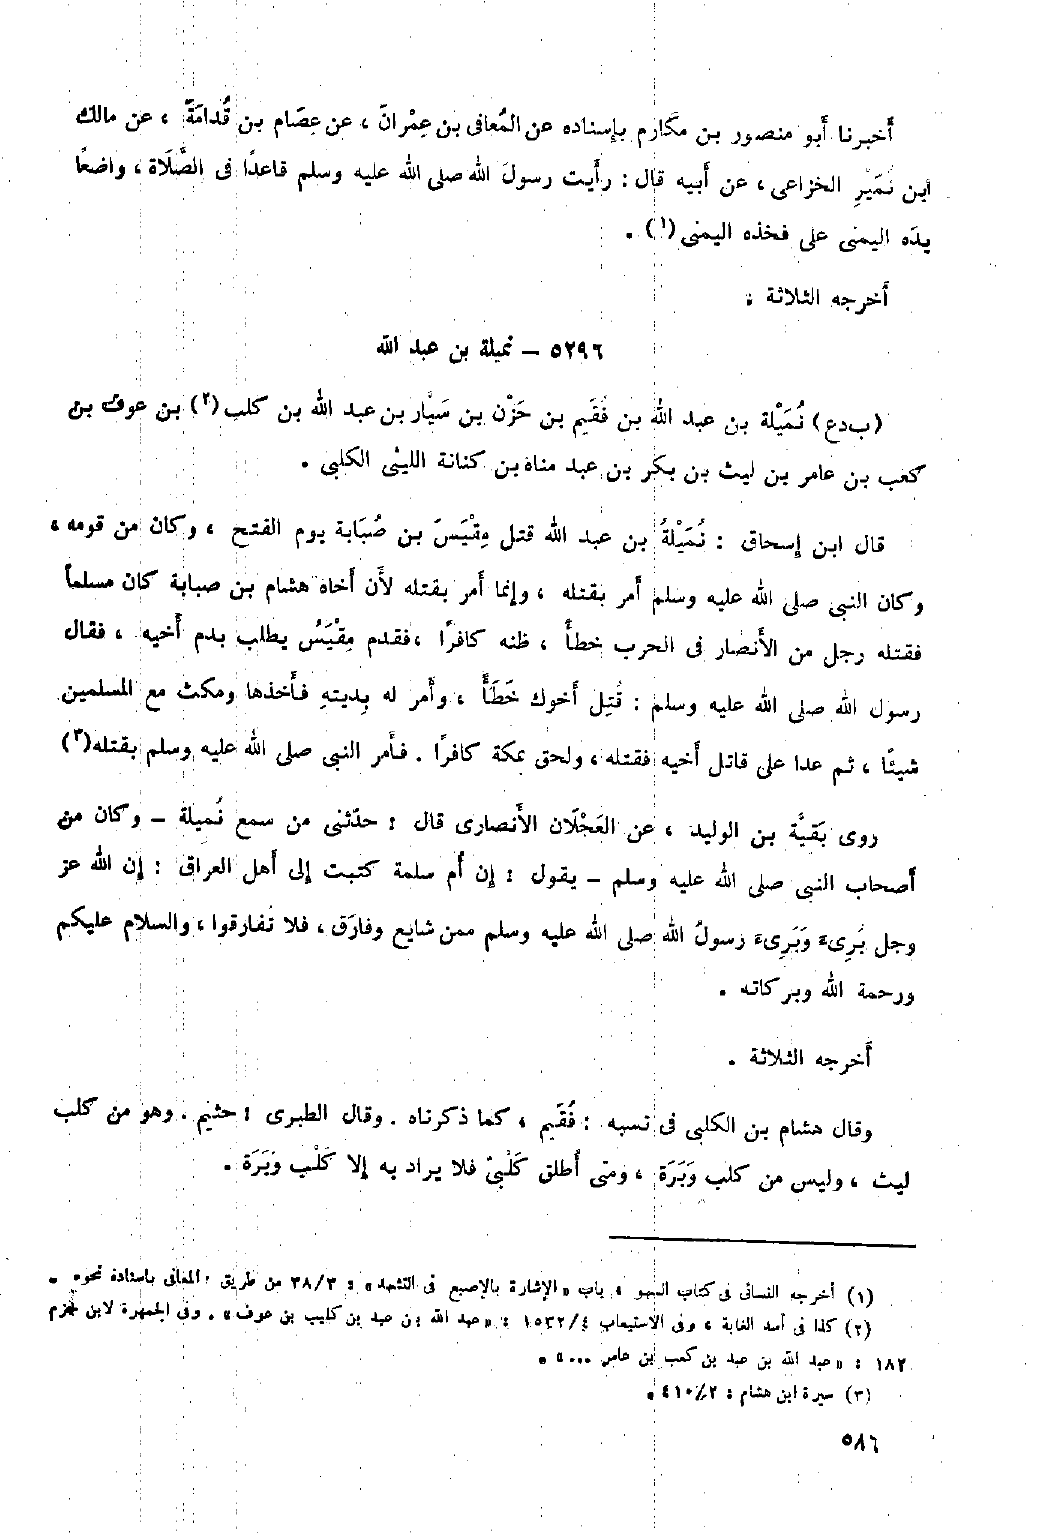 أخبرنا أبو منصور بن مكارم بإسناده عن المُعافى بن عِمْرانَ ، عن عِصَام بن قُدامَةَ ، عن مالك
ابن نُمَيْرِ الخزاعى ، عن أبيه قال : رأَيت رسولَ الله صلى الله عليه وسلم قاعدًا فى الصَّلَاة ، واضعًا
يدَه اليمنى على فخذه اليمنى(١) .
أخرجه الثلاثة :
٥٢٩٦ – نميلة بن عبد الله
(ب د ع) نُمَيْلة بن عبد الله بن فُقَيم بن حَزْن بن سَيَّار بن عبد الله بن كلب(٢) بن عوف بن
كعب بن عامر بن ليث بن بكر بن عبد مناة بن كنانة الليثى الكلبى .
قال ابن إسحاق : نُمَيْلةُ بن عبد الله قتل مِقْيَسَ بن صُبَابة يوم الفتح ، وكان من قومه ،
وكان النبى صلى الله عليه وسلم أمر بقتله ، وإنما أمر بقتله لأَن أخاه هشام بن صبابة كان مسلماً
فقتله رجل من الأَنصار فى الحرب خطأً ، ظنه كافرًا ، فقدم مِقْيَسُ يطلب بدم أَخيه ، فقال
رسول الله صلى الله عليه وسلم : قُتِل أخوك خَطَأً ، وأمر له بِديتهِ فأخذها ومكث مع المسلمين
شيئًا ، ثم عدا على قاتل أخيه فقتله ، ولحق بمكة كافرًا . فأمر النبى صلى الله عليه وسلم بقتله(٣)
روى بَقيَّة بن الوليد ، عن العَجْلَان الأَنصارى قال : حدّثنى من سمع نُميلة – وكان من
أصحاب النبى صلى الله عليه وسلم – يقول : إن أُم سلمة كتبت إلى أهل العراق : إن الله عز
وجل بَرِىءٌ وَبَرِىءَ رسولُ الله صلى الله عليه وسلم ممن شايع وفارَق ، فلا تُفارقوا ، والسلام عليكم
ورحمة الله وبركاته .
أخرجه الثلاثة .
وقال هشام بن الكلبى فى نسبه : فُقَيم ، كما ذكرناه . وقال الطبرى : حثيم . وهو من كلب
ليث ، وليس من كلب وَبَرَة ، ومتى أُطلق كَلْبىّ فلا يراد به إلا كَلْب وَبَرَة .
(١) أخرجه النسائى فى كتاب السهو ، باب « الإشارة بالإصبع فى التشهد » : ٣٨/٣ من طريق المعافى باسناده نحوه .
(٢) كذا فى أسد الغابة ، وفى الاستيعاب ١٥٣٢/٤ : « عبد الله بن عبد بن كليب بن عوف » . وفى الجمهرة لابن حزم
١٨٢ : « عبد الله بن عبد بن كعب بن عامر ... » .
(٣) سيرة ابن هشام : ٤١٠/٢ .
٥٨٦